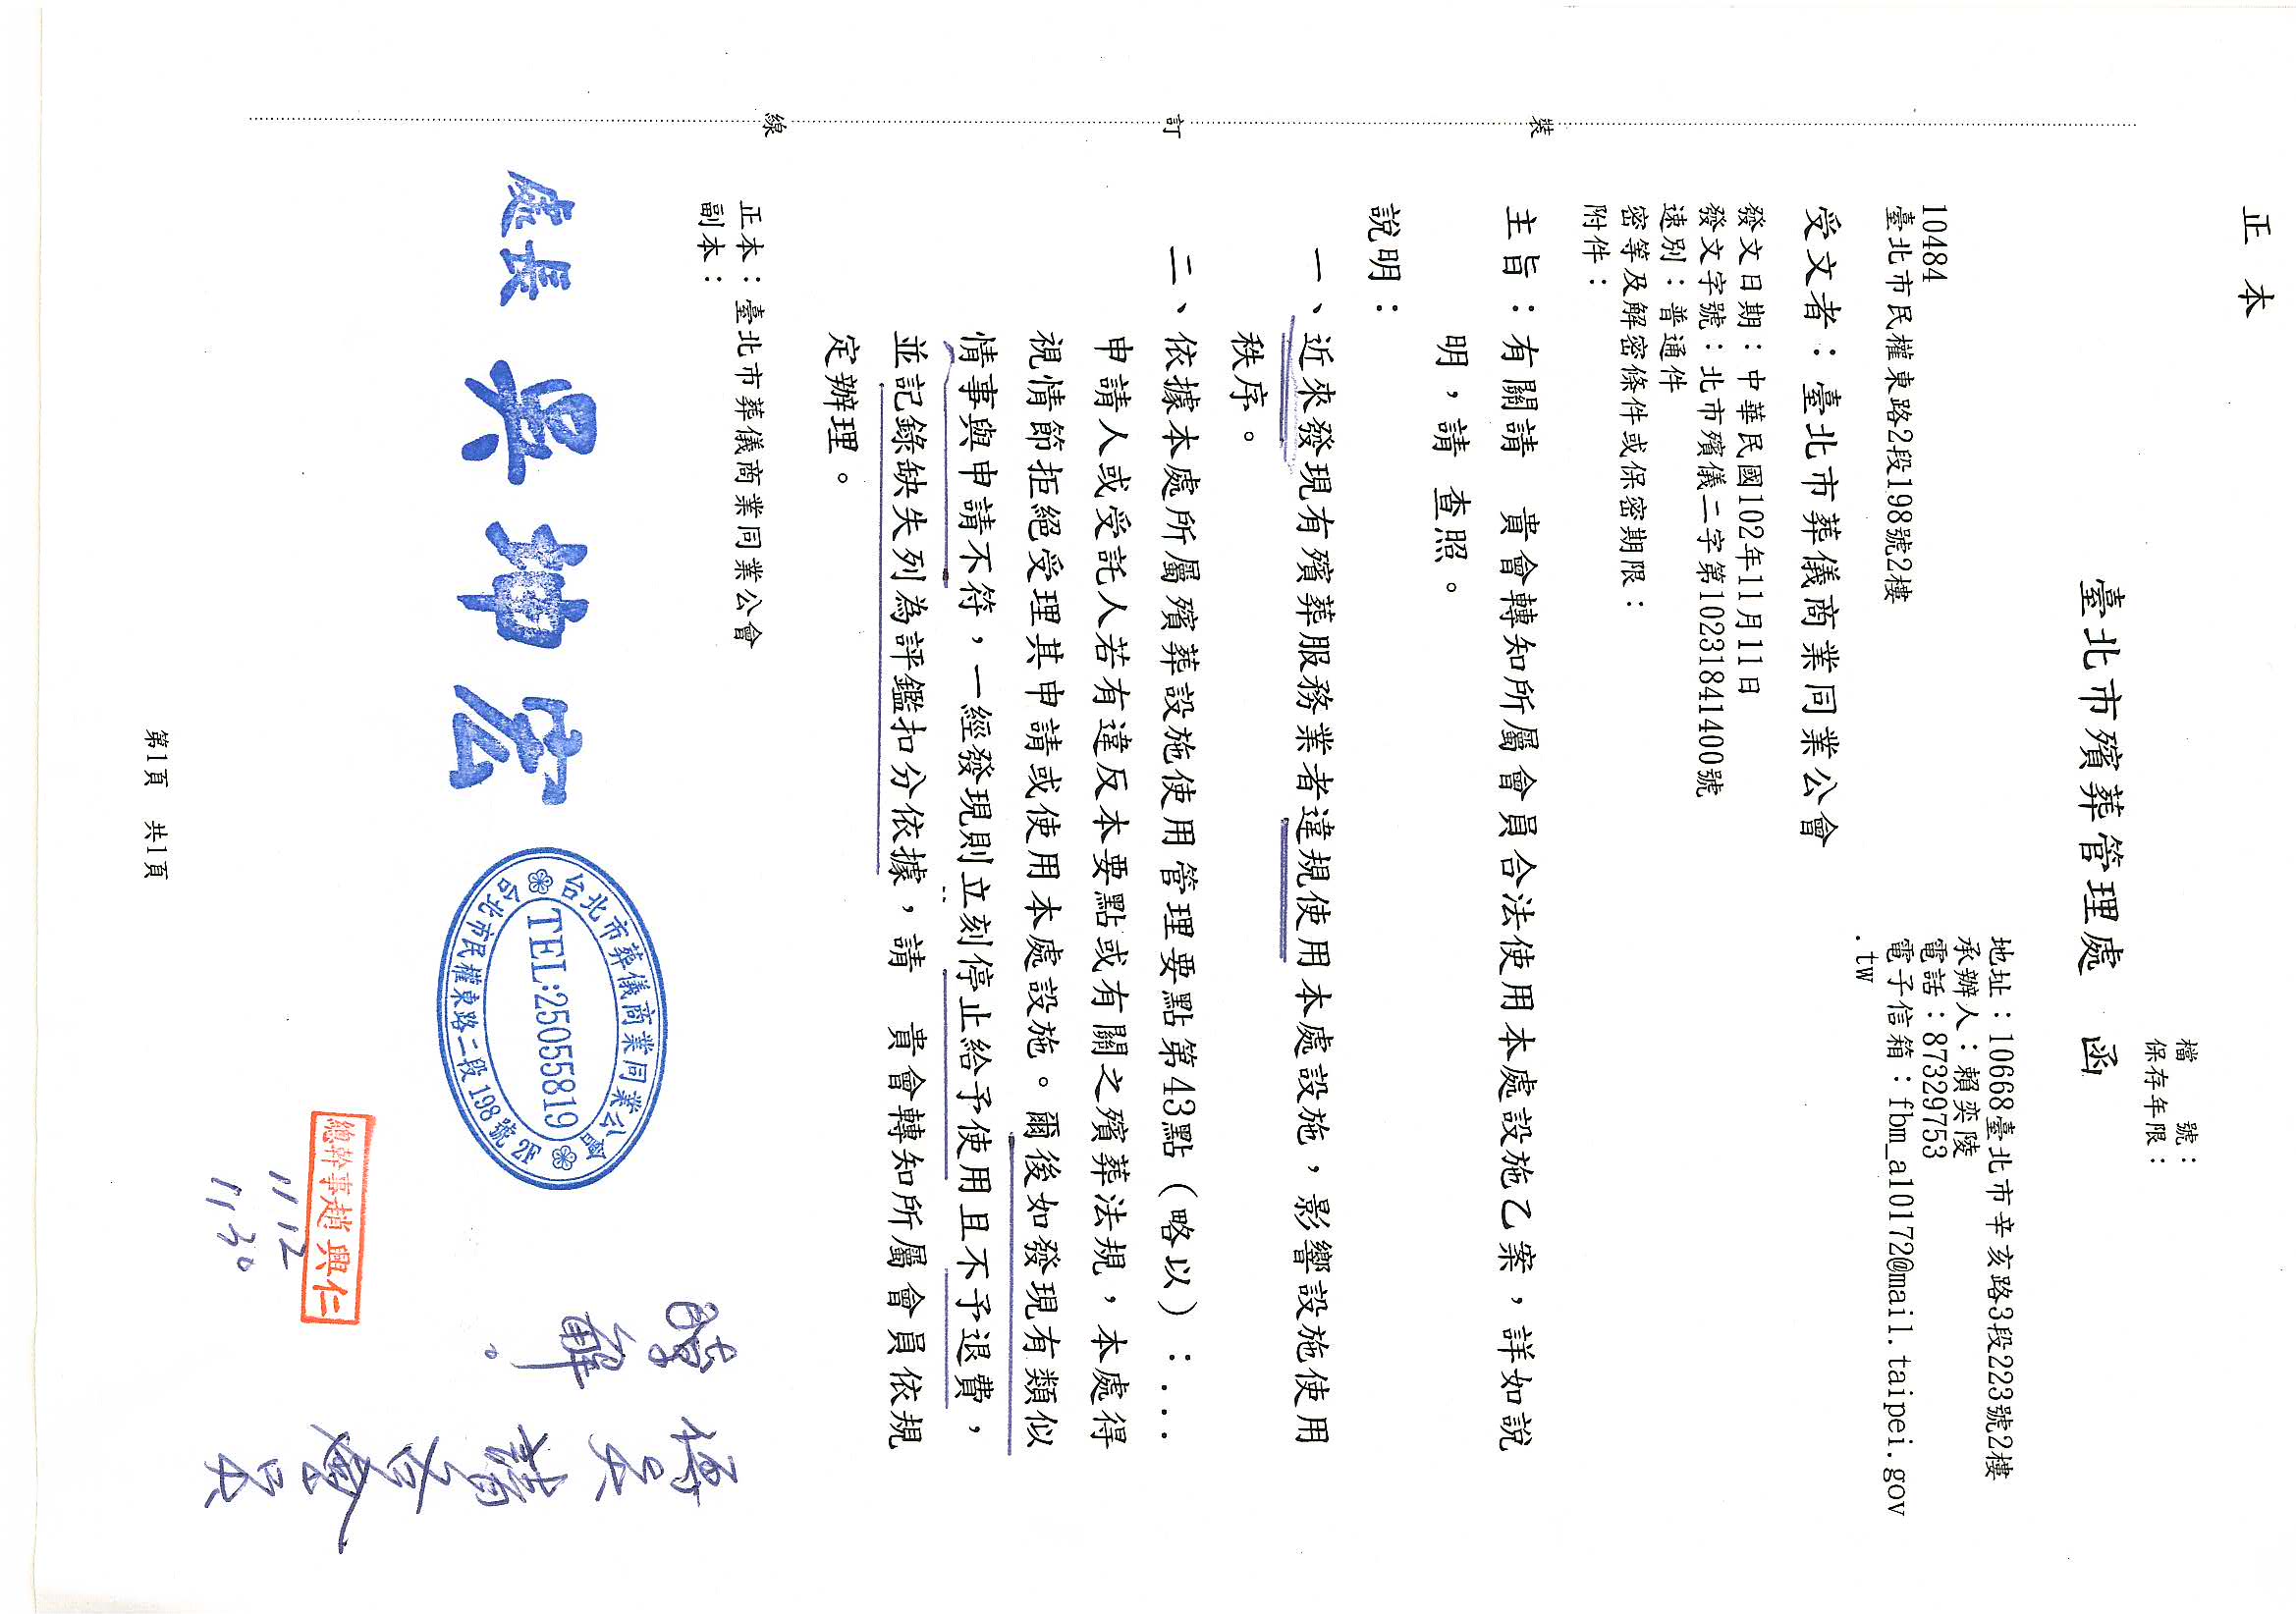 正本
檔　　號：
保存年限：
臺北市殯葬管理處　函
地址：10668臺北市辛亥路3段223號2樓
承辦人：賴奕陵
電話：87329753
電子信箱：fbm_a10172@mail.taipei.gov
.tw
10484
臺北市民權東路2段198號2樓
受文者：臺北市葬儀商業同業公會
發文日期：中華民國102年11月11日
發文字號：北市殯儀二字第10231841400號
速別：普通件
密等及解密條件或保密期限：
附件：
主旨：有關請　貴會轉知所屬會員合法使用本處設施乙案，詳如說
明，請　查照。
說明：
一、近來發現有殯葬服務業者違規使用本處設施，影響設施使用
秩序。
二、依據本處所屬殯葬設施使用管理要點第43點（略以）：....
申請人或受託人若有違反本要點或有關之殯葬法規，本處得
視情節拒絕受理其申請或使用本處設施。爾後如發現有類似
情事與申請不符，一經發現則立刻停止給予使用且不予退費，
並記錄缺失列為評鑑扣分依據，請　貴會轉知所屬會員依規
定辦理。
正本：臺北市葬儀商業同業公會
副本：
處長 吳坤宏
台北市葬儀商業同業公會
TEL:25055819
台北市民權東路二段198號2F
總幹事趙興仁
11/12
11:30
第1頁　共1頁
裝
訂
線